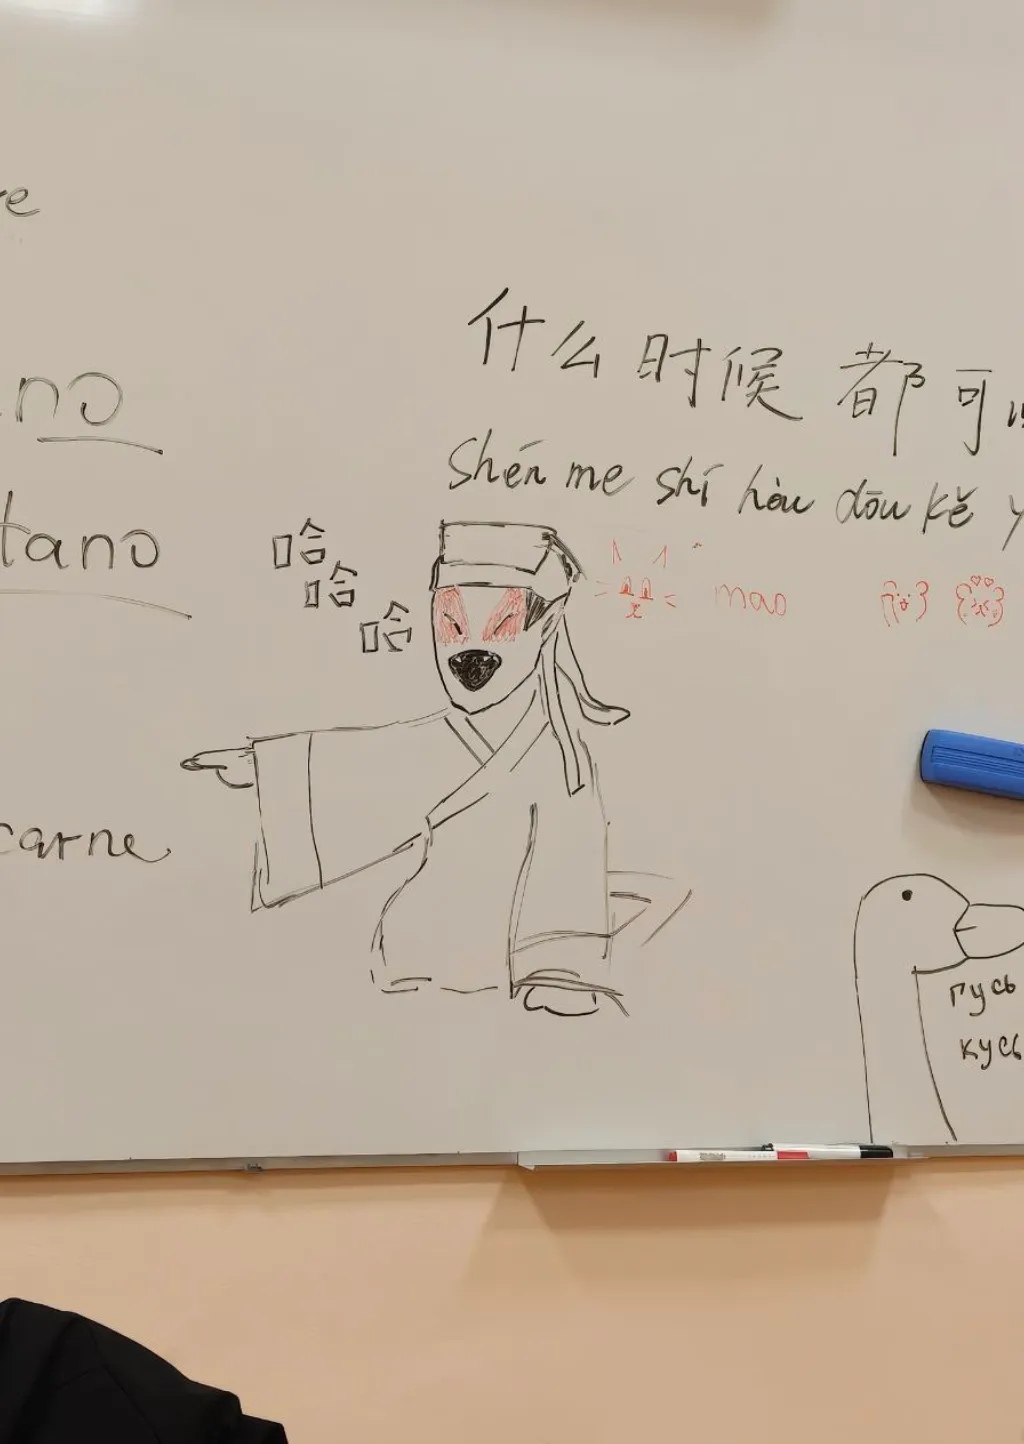 什么时候都可
Shén me shí hòu dōu kě y
哈
哈
哈
mao
tano
carne
гусь
кусь